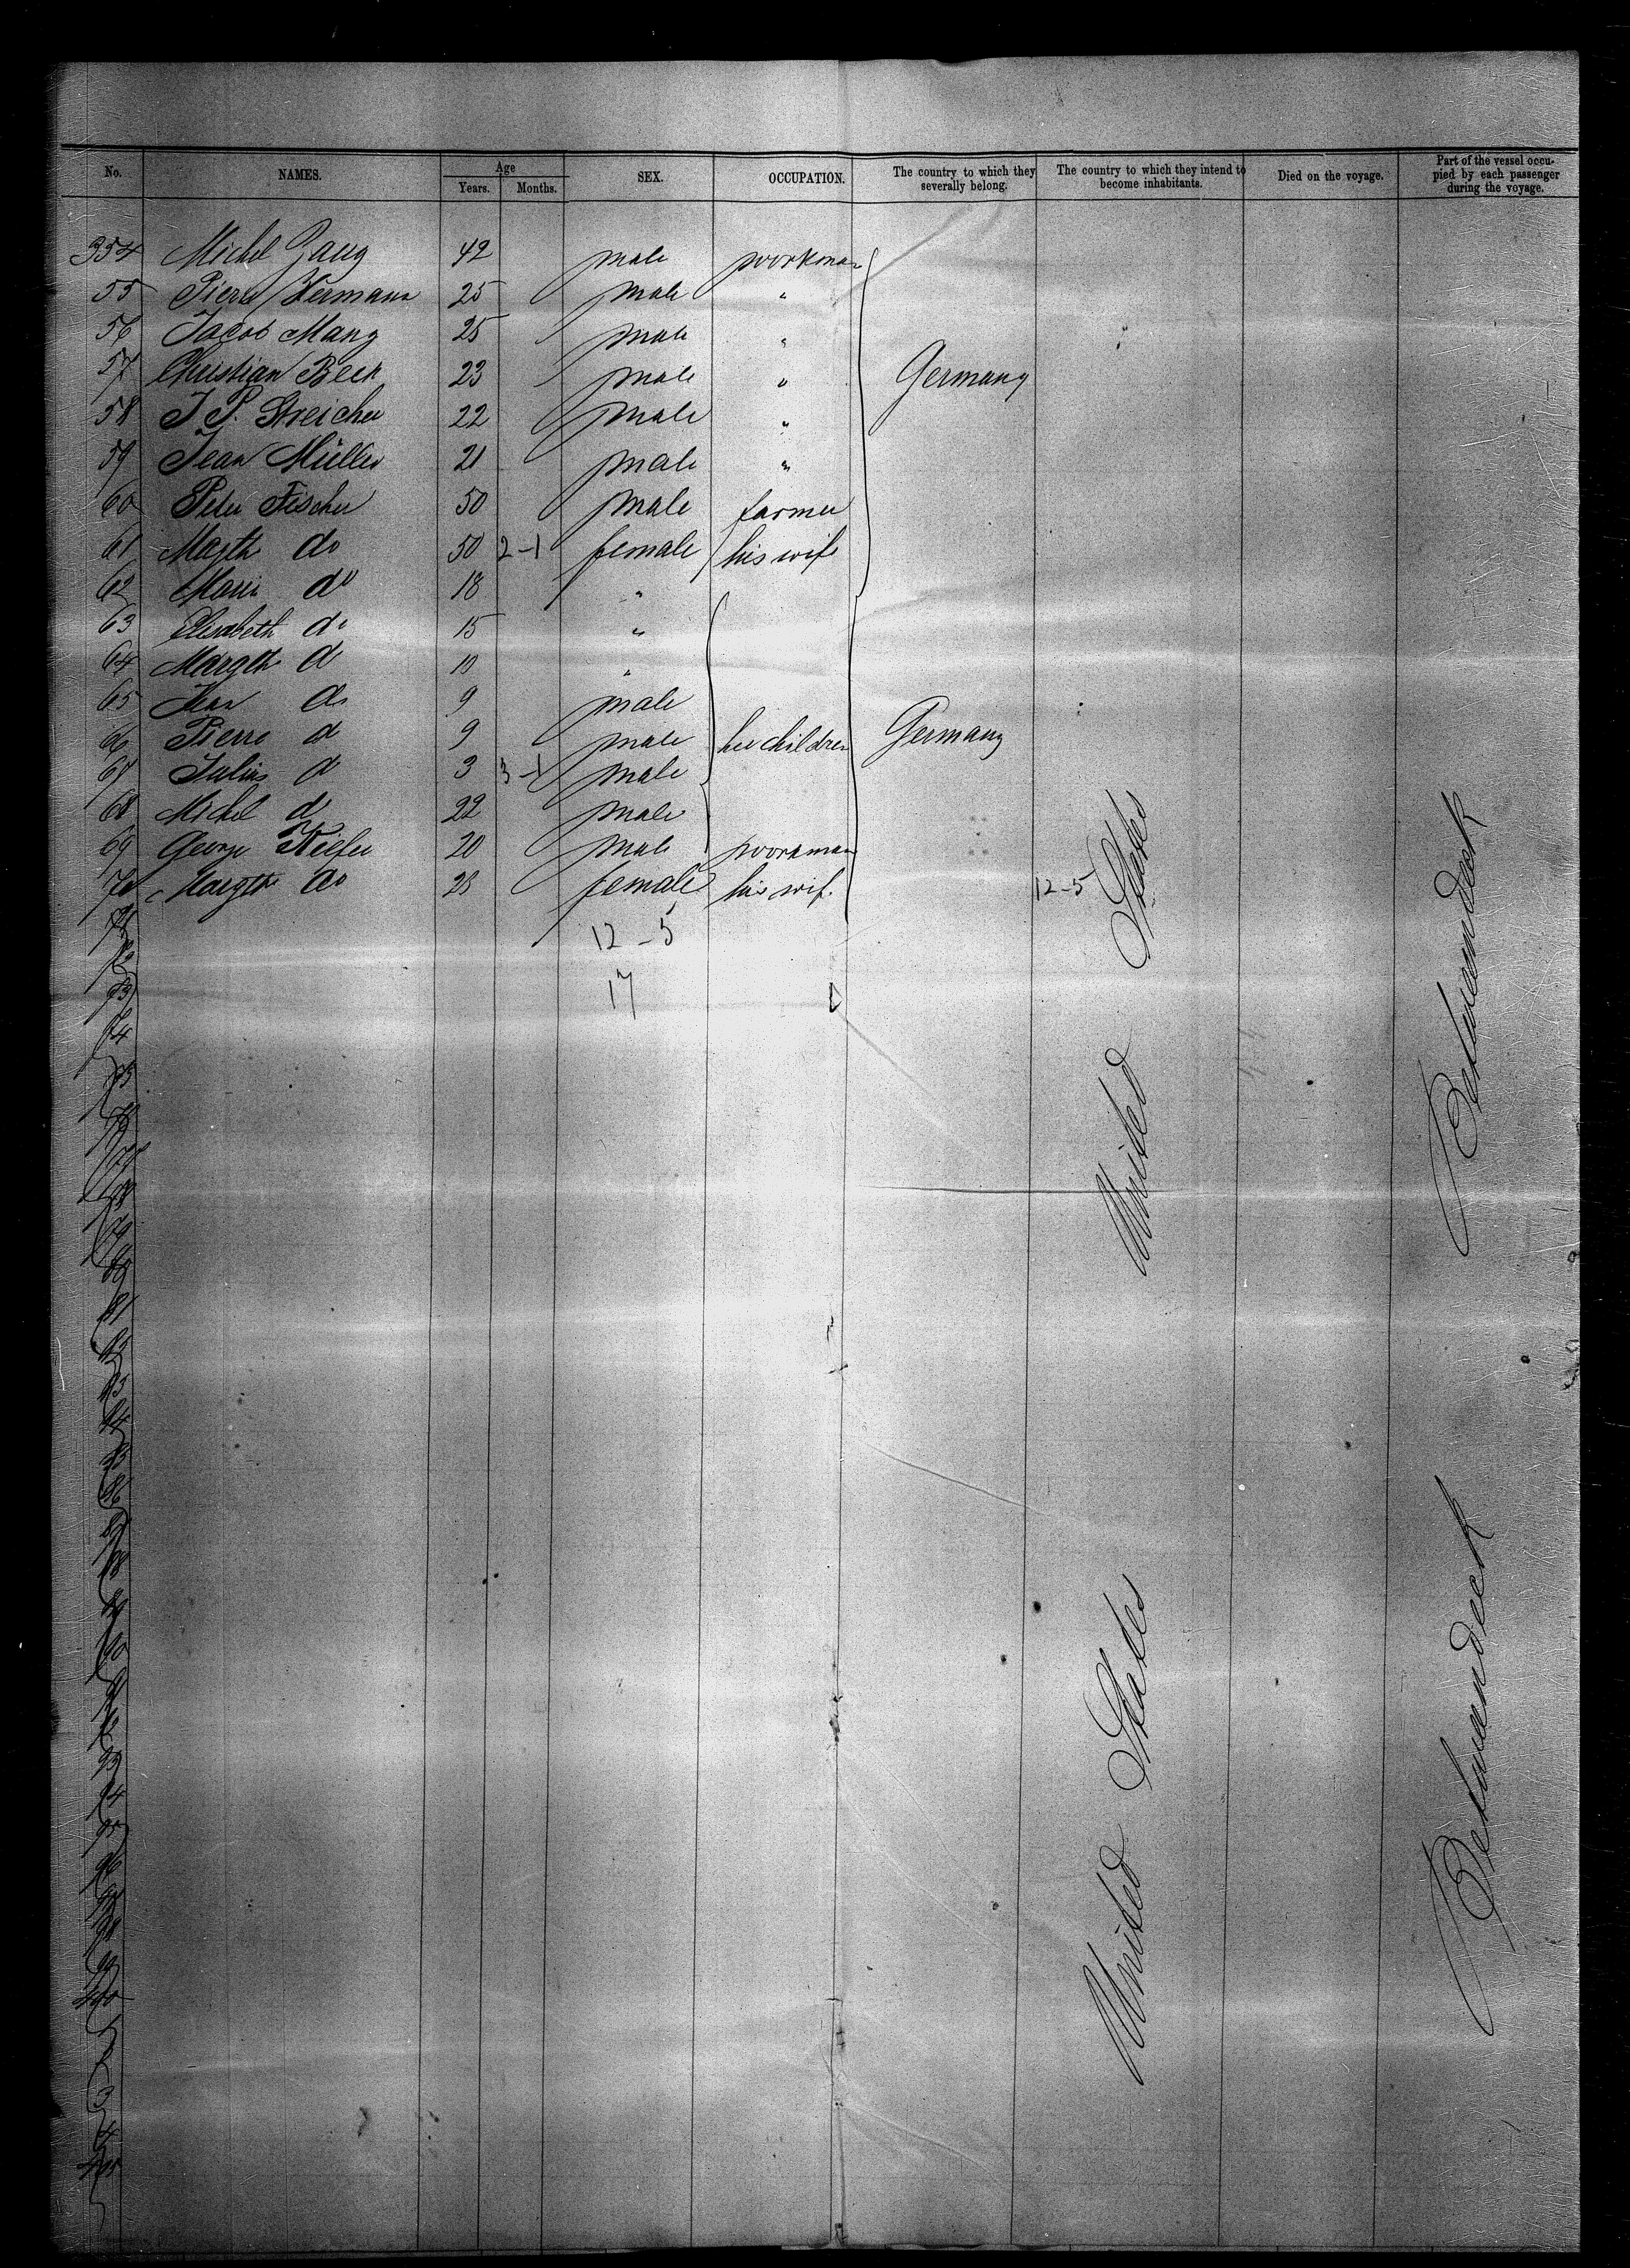 No. NAMES. Age Years. Months. SEX. OCCUPATION. The country to which they severally belong. The country to which they intend to become inhabitants. Died on the voyage. Part of the vessel occupied by each passenger during the voyage.
354 Michel Zaug 42 male workman
55 Pierre Hermann 25 male "
56 Jacob Mang 25 male "
57 Christian Beck 23 male " Germany
58 J. P. Streicher 22 male "
59 Jean Müller 21 male "
60 Peter Fischer 50 male farmer
61 Margth do 50 2-1 female his wife
62 Marie do 18 "
63 Elisabeth do 15 "
64 Margth do "
65 Jean do 9 male
66 Pierre do 9 male her children Germany
67 Julius do 3 3-1 male
68 Michel do 22 male
69 George Kiefer 20 male workman
70 Margth do 28 female his wife 12-5
12-5
17
71
72
73
74
75
76
77
78
79
80
81
82
83
84
85
86
87
88
89
90
91
92
93
94
95
96
97
98
99
400
3
4
405
United States
United States
Betweendeck
Betweendeck